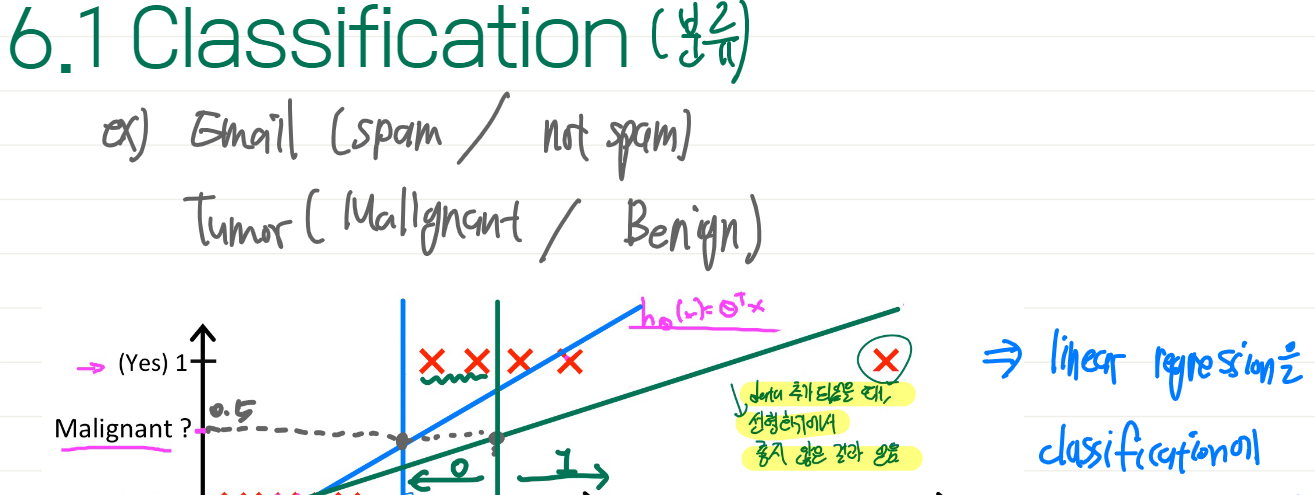 6.1 Classification (분류)
ex) Email (spam / not spam)
Tumor (Malignant / Benign)
hθ(x)= θᵀx
(Yes) 1
0.5
Malignant ?
data 추가 되었을 때,
선형회귀에서
좋지 않은 결과 얻음
0 1
⇒ linear regression을
classification에